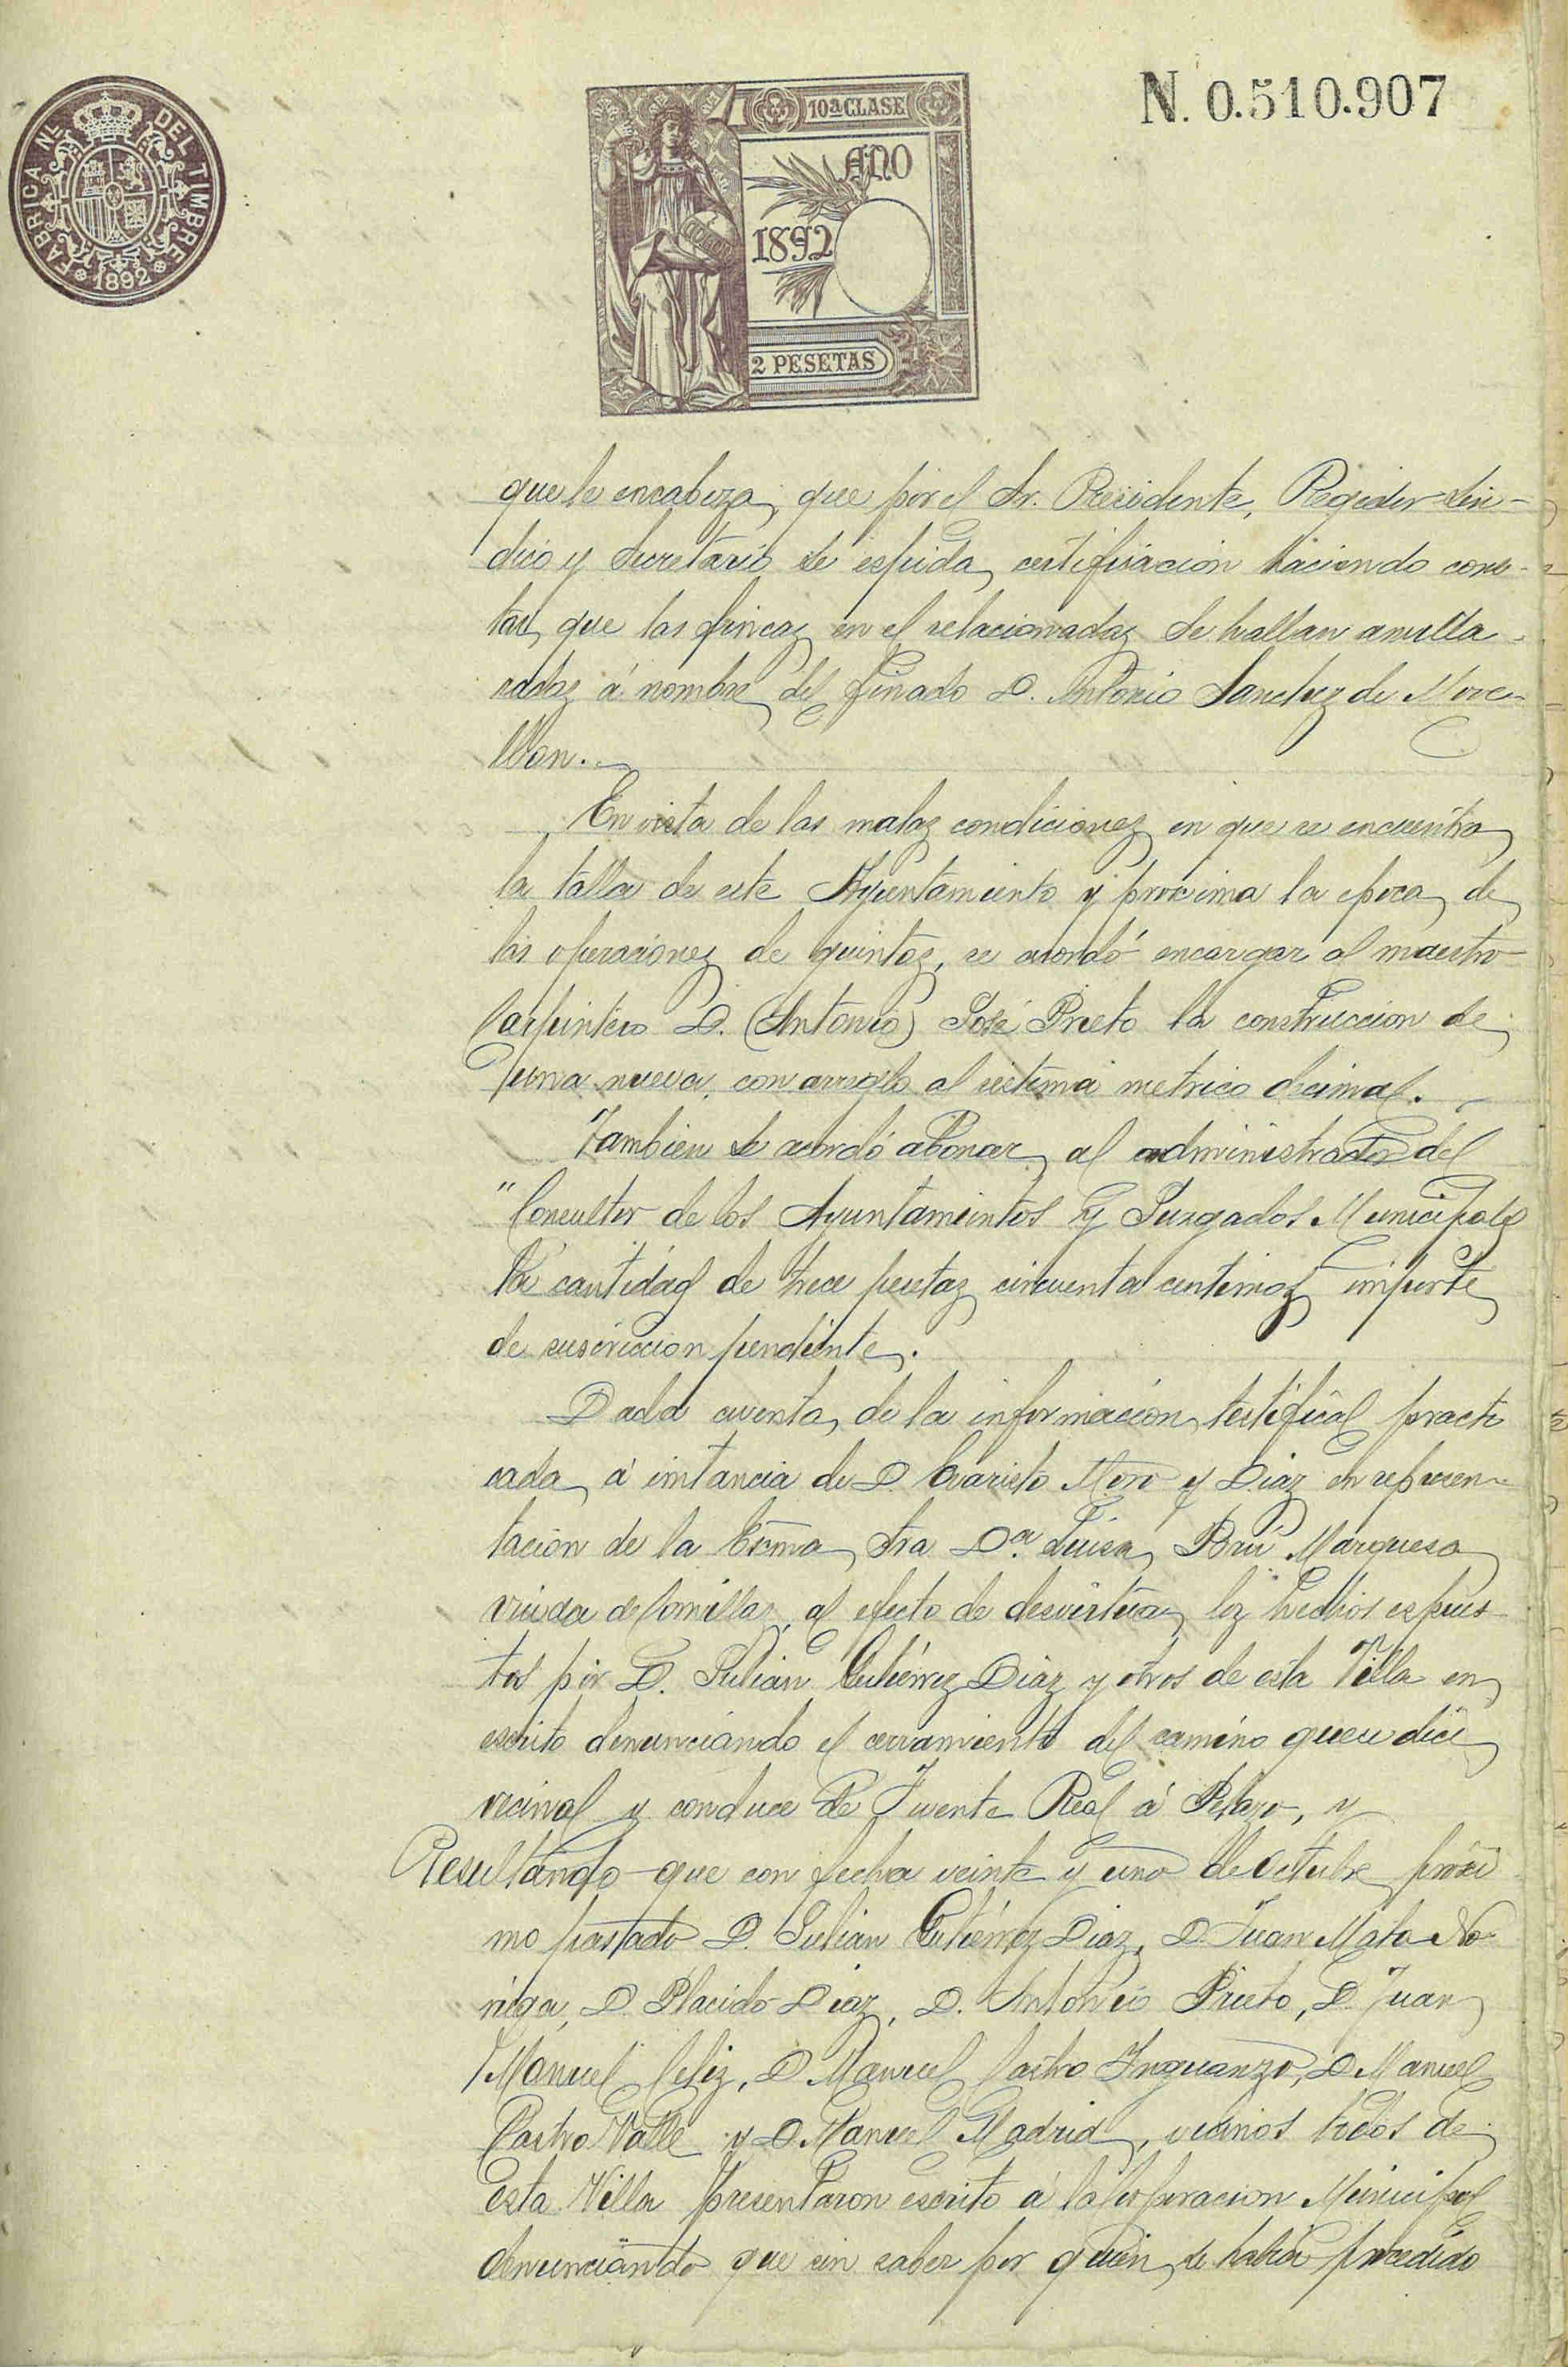 FABRICA NL. DEL TIMBRE
1892
10ª CLASE
AÑO
1892
2 PESETAS
N. 0.510.907
que le encabeza, que por el Sr. Presidente, Regidor Sin-
dico y Secretario se espida certificacion haciendo cons-
tar, que las fincas en el relacionadas se hallan amilla-
radas á nombre del finado D. Antonio Sanchez de Move-
llan.
En vista de las malas condiciones en que se encuentra
la talla de este Ayuntamiento y procima la epoca de
las operaciones de quintas, se acordó encargar al maestro
Carpintero D. (Antonio) José Prieto la construccion de
una nueva, con arreglo al sistema metrico decimal.
Tambien se acordó abonar al administrador del
"Consultor de los Ayuntamientos y Juzgados Municipales
la cantidad de trece pesetas cincuenta centimos importe
de suscricion pendiente.
Dada cuenta, de la informacion testifical practi
cada, á instancia de D. Evaristo Moro y Diaz en represen-
tacion de la Excma Sra Dª. Luisa Brú Marquesa
viuda de Comillas, al efecto de desvirtuar los hechos espues-
tos por D. Julian Gutiérrez Diaz y otros de esta Villa en
escrito denunciando el cerramiento del camino que se dice
vecinal y conduce de Fuente Real á Peñazo, y
Resultando que con fecha veinte y uno de Octubre próxi
mo pastado D. Julian Gutiérrez Diaz, D. Juan Mata No-
riega, D. Placido Diaz, D. Antonio Prieto, D. Juan
Manuel Celiz, D Manuel Castro Inguanzo, D Manuel
Castro Valle y D Manuel Madrid, vecinos todos de
esta Villa presentaron escrito á la Corporacion Municipal
denunciando que sin saber por quien se habia procedido